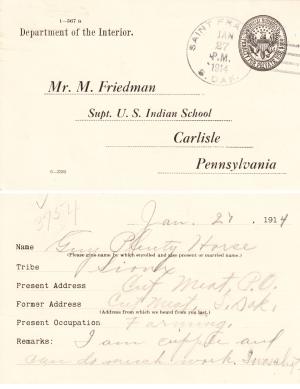 1-567 a
Department of the Interior.
SAINT FRA
JAN
27
P.M.
1914
S. DAK.
Mr. M. Friedman
Supt. U. S. Indian School
Carlisle
Pennsylvania
3954
Jan. 27, 1914
Name Guy Plenty Horse
(Please give name by which enrolled and also present or married name.)
Tribe Sioux
Present Address Cut Meat, P.O.
Former Address Cut Meat, S. Dak.
(Address from which we heard from you last.)
Present Occupation Farming.
Remarks: I am cripple and
can do much work.